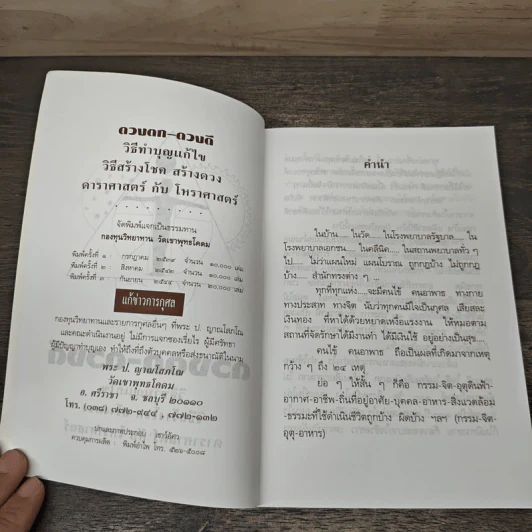 ดวงตก-ดวงดี
วิธีทำบุญแก้ไข
วิธีสร้างโชค สร้างดวง
ดาราศาสตร์ กับ โหราศาสตร์
จัดพิมพ์แจกเป็นธรรมทาน
กองทุนวิทยาทาน วัดเขาพุทธโคดม
พิมพ์ครั้งที่ ๑ กรกฎาคม ๒๕๓๙ จำนวน ๑๐,๐๐๐ เล่ม
พิมพ์ครั้งที่ ๒ สิงหาคม ๒๕๔๒ จำนวน ๑๐,๐๐๐ เล่ม
พิมพ์ครั้งที่ ๓ กันยายน ๒๕๔๔ จำนวน ๒๐,๐๐๐ เล่ม
แก้ข่าวการกุศล
กองทุนวิทยาทานและรายการกุศลอื่นๆ ที่พระ ป. ญาณโสภโณ
และคณะดำเนินงานอยู่ ไม่มีการแจกซองเรี่ยไร ผู้มีศรัทธา
ผู้มีปัญญาทำบุญเอง ทำให้ถึงที่ถึงตัวบุคคลหรือส่งธนาณัติในนาม
พระ ป. ญาณโสภโณ
วัดเขาพุทธโคดม
อ. ศรีราชา จ. ชลบุรี ๒๐๑๑๐
โทร. (๐๓๘) ๗๗๒-๔๔๔ , ๗๗๒-๑๓๒
ควบคุมการผลิต : พิมพ์อำไพ โทร. ๕๒๑-๕๐๐๘
คำนำ
ในบ้าน..... ในวัด..... ในโรงพยาบาลรัฐบาล..... ใน
โรงพยาบาลเอกชน..... ในคลีนิค..... ในสถานพยาบาลทั่ว ๆ
ไป..... ไม่ว่าแผนใหม่ แผนโบราณ ถูกกฎบ้าง ไม่ถูกกฎ
บ้าง..... สำนักทรงต่าง ๆ ...
ทุกที่ทุกแห่ง.....จะมีคนไข้ คนอาพาธ ทางกาย
ทางประสาท ทางจิต นับว่าทุกคนมีใจเป็นกุศล เสียสละ
เงินทอง ที่หาได้ด้วยหยาดเหงื่อแรงงาน ให้หมอตาม
สถานที่จัดรักษาได้มีงานทำ ได้มีเงินใช้ อยู่อย่างเป็นสุข
คนไข้ คนอาพาธ ถือเป็นผลที่เกิดมาจากเหตุ
กว้าง ๆ ถึง ๒๔ เหตุ
ย่อ ๆ ให้สั้น ๆ ก็คือ กรรม-จิต-อุตุดินฟ้า-
อากาศ-อาชีพ-ถิ่นที่อยู่อาศัย-บุคคล-อาหาร-สิ่งแวดล้อม
-ธรรมะที่ใช้ดำเนินชีวิตถูกบ้าง ผิดบ้าง ฯลฯ (กรรม-จิต-
อุตุ-อาหาร)